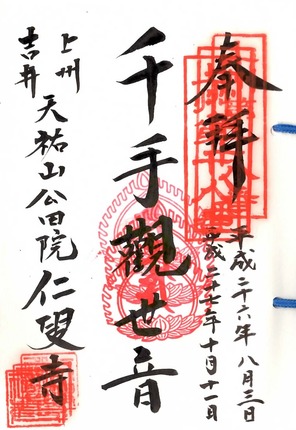 奉拝
平成二十六年八月三日
平成二十七年十月十一日
千手觀世音
上州
吉井
天祐山公田院仁叟寺